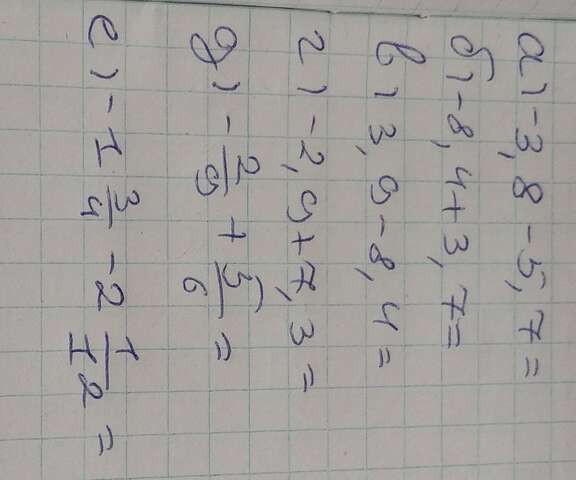 а) -3,8 - 5,7 =
б) -8,4 + 3,7 =
в) 3,9 - 8,4 =
г) -2,9 + 7,3 =
д) - 2/9 + 5/6 =
е) - 1 3/4 - 2 1/12 =